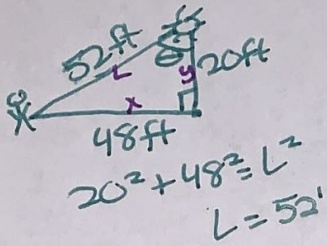 52ft
L
θ
y
20ft
x
48ft
20² + 48² = L²
L = 52'